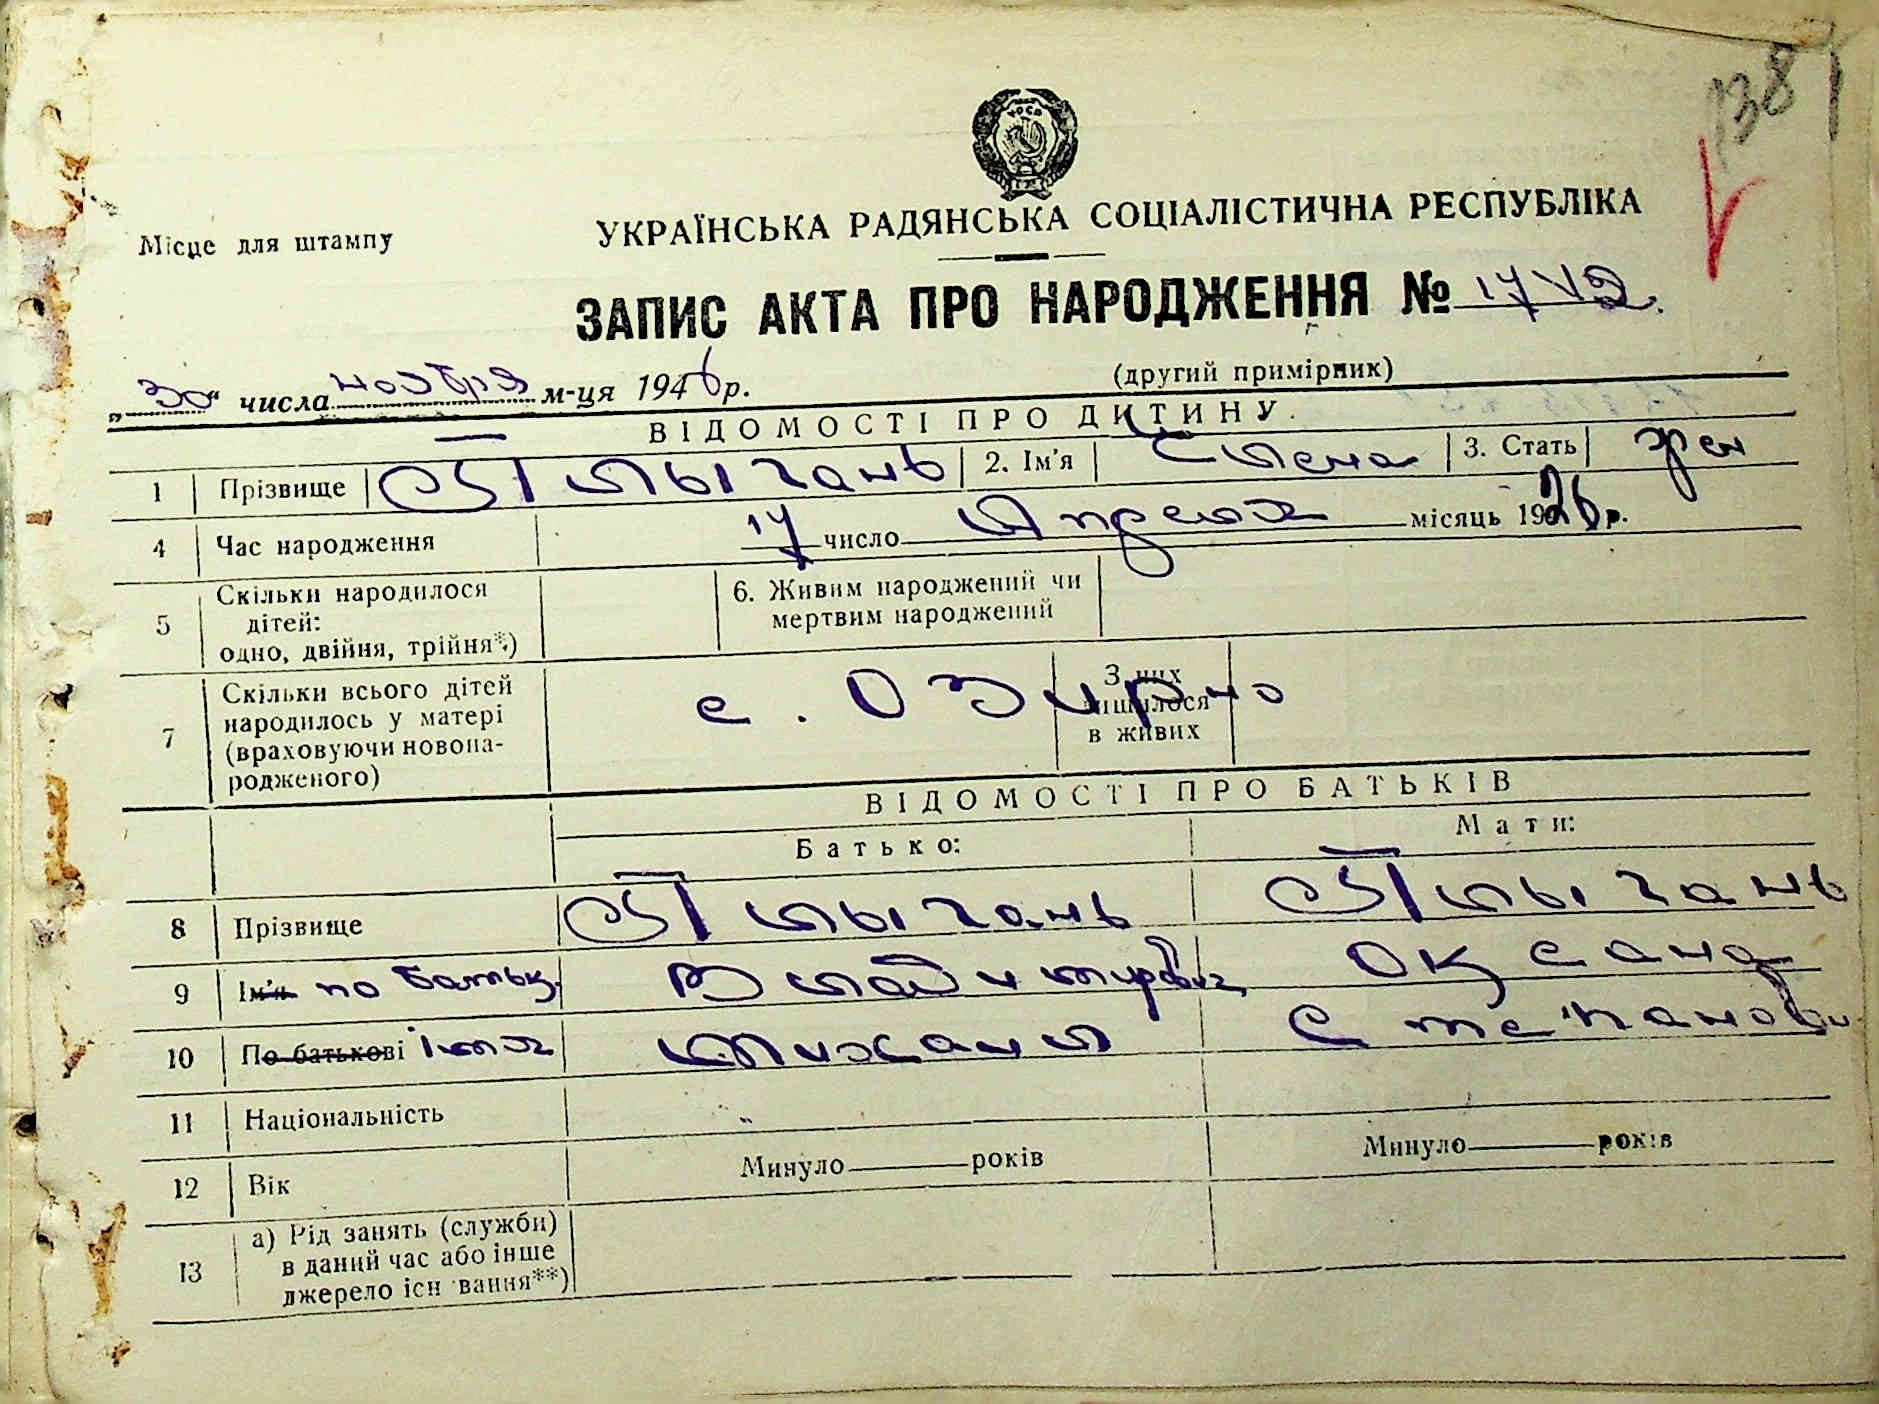 1381
Місце для штампу
УКРАЇНСЬКА РАДЯНСЬКА СОЦІАЛІСТИЧНА РЕСПУБЛІКА
ЗАПИС АКТА ПРО НАРОДЖЕННЯ №
(другий примірник)
„30“ числа ноября м-ця 1946 р.
ВІДОМОСТІ ПРО ДИТИНУ.
1 Прізвище 2. Ім'я Елена 3. Стать жен
4 Час народження 17 число Апреля місяць 1926 р.
5 Скільки народилося дітей: одно, двійня, трійня*) 6. Живим народжений чи мертвим народжений
7 Скільки всього дітей народилось у матері (враховуючи новонародженого) с. Озирно З них лишилося в живих
ВІДОМОСТІ ПРО БАТЬКІВ
Батько: Мати:
8 Прізвище
9 Ім'я по батьк. Владимирович Оксана
10 По батькові Імя Михаил Степановн
11 Національність
12 Вік Минуло років Минуло років
13 а) Рід занять (служби) в даний час або інше джерело існування**)